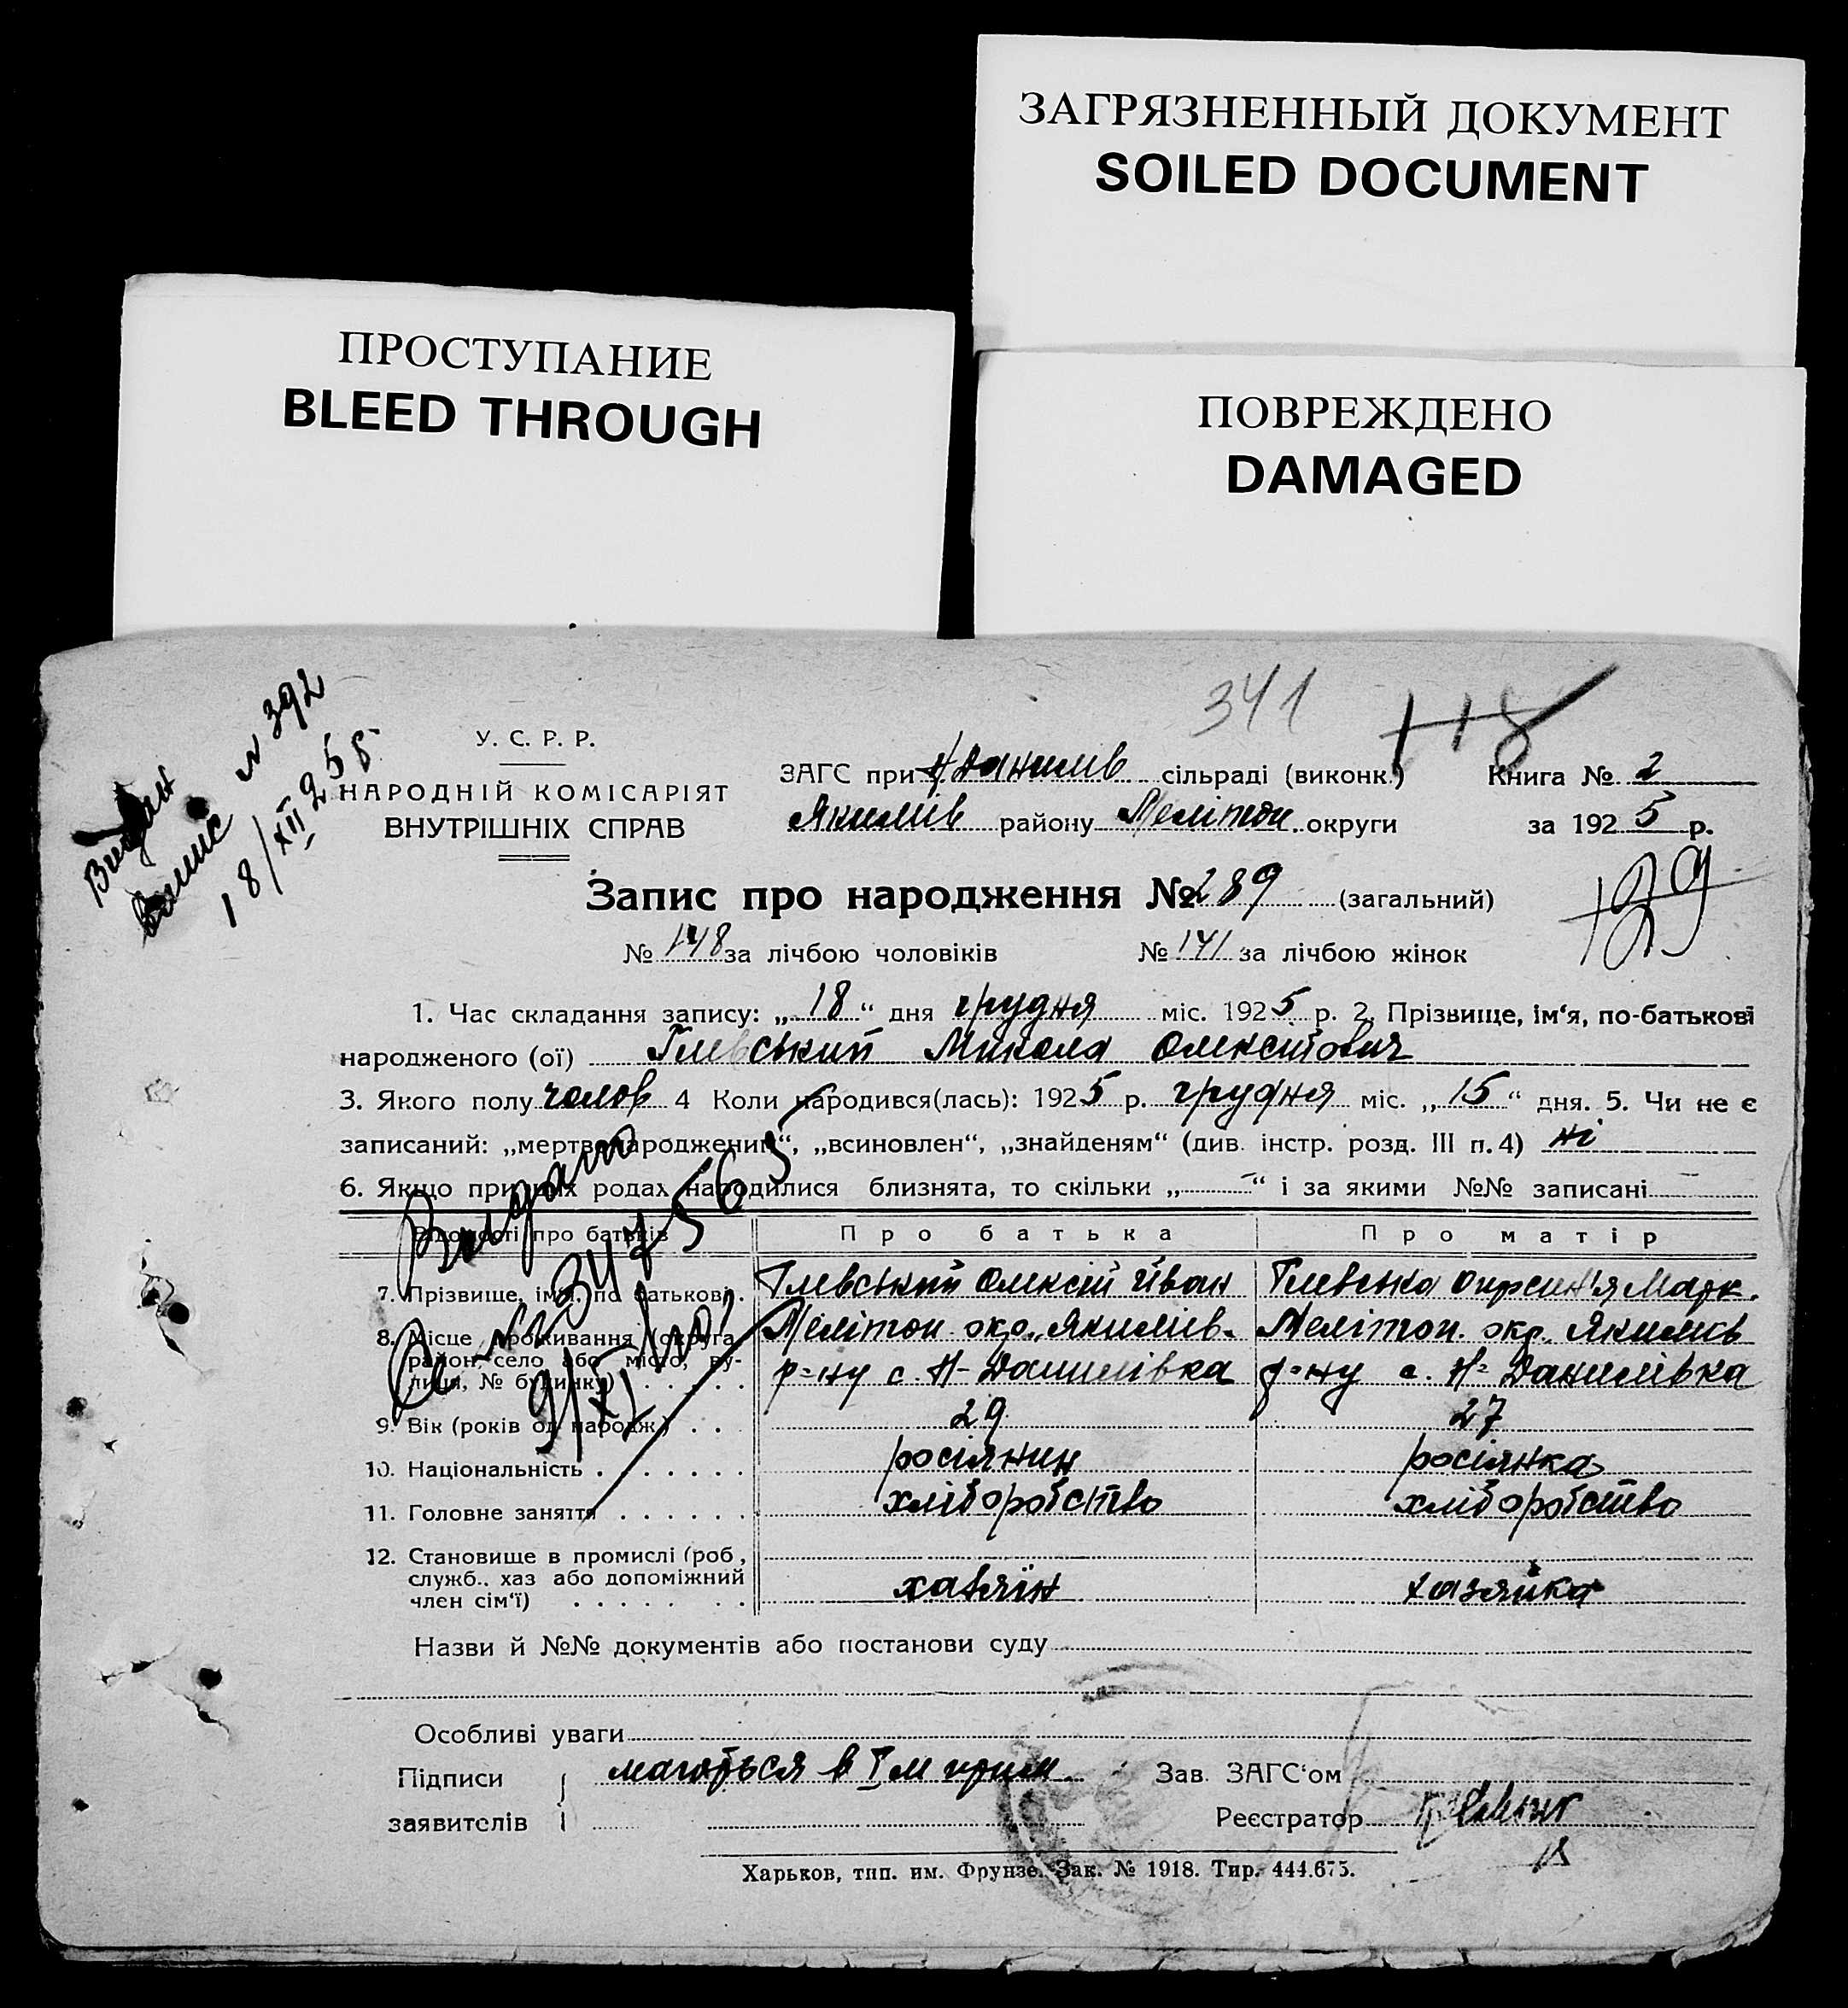 ЗАГРЯЗНЕННЫЙ ДОКУМЕНТ
SOILED DOCUMENT
ПРОСТУПАНИЕ
BLEED THROUGH
ПОВРЕЖДЕНО
DAMAGED
341 118
№ 392
18/XII 25 р.
У. С. Р. Р.
НАРОДНІЙ КОМІСАРІЯТ
ВНУТРІШНІХ СПРАВ
ЗАГС при Н Данилів сільраді (виконк.) Книга № 2
Якимів району Мелітоп. округи за 1925 р.
129
Запис про народження № 289 (загальний)
№ 148 за лічбою чоловіків № 141 за лічбою жінок
1. Час складання запису: „18“ дня грудня міс. 1925 р. 2. Прізвище, ім‘я, по-батькові
народженого (ої) Гиевський Микола Олексійович
3. Якого полу чолов 4 Коли народився(лась): 1925 р. грудня міс. „15“ дня. 5. Чи не є
записаний: „мертвонароджений“, „всиновлен“, „знайденям“ (див. інстр. розд. III п. 4) ні
6. Якщо при цих родах народилися близнята, то скільки „—“ і за якими №№ записані —
Видано
Відомості про батьків Про батька Про матір
7. Прізвище, ім‘я, по батькові. Гиевський Олексій Йван Гиевська Марк.
8. Місце проживання (округа, район, село або місто, ву-
лиця, № будинку) . . . . .
Мелітоп. окр. Якимів. Мелітоп. окр. Якимів
р=ну с. Н-Данилівка р=ну с. Н=Данилівка
9. Вік (років од народж.) . . 29 27
10. Національність . . . . . . . росіянин росіянка
11. Головне заняття . . . . . . хліборобство хліборобство
12. Становище в промислі (роб,
служб., хаз або допоміжний
член сім‘ї) . . . . . . . хазяїн хазяйка
Назви й №№ документів або постанови суду
Особливі уваги
Підписи маються в І м прим Зав. ЗАГС‘ом
заявителів Реєстратор
Харьков, тип. им. Фрунзе. Зак. № 1918. Тир. 444.675.